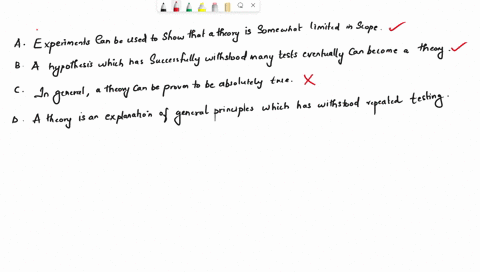 A. Experiments Can be used to Show that a theory is Somewhat limited in Scope.
B. A hypothesis which has Successfully withstood many tests eventually Can become a theory.
C. In general, a theory Can be proven to be absolutely true.
D. A theory is an explanation of general principles which has withstood repeated testing.